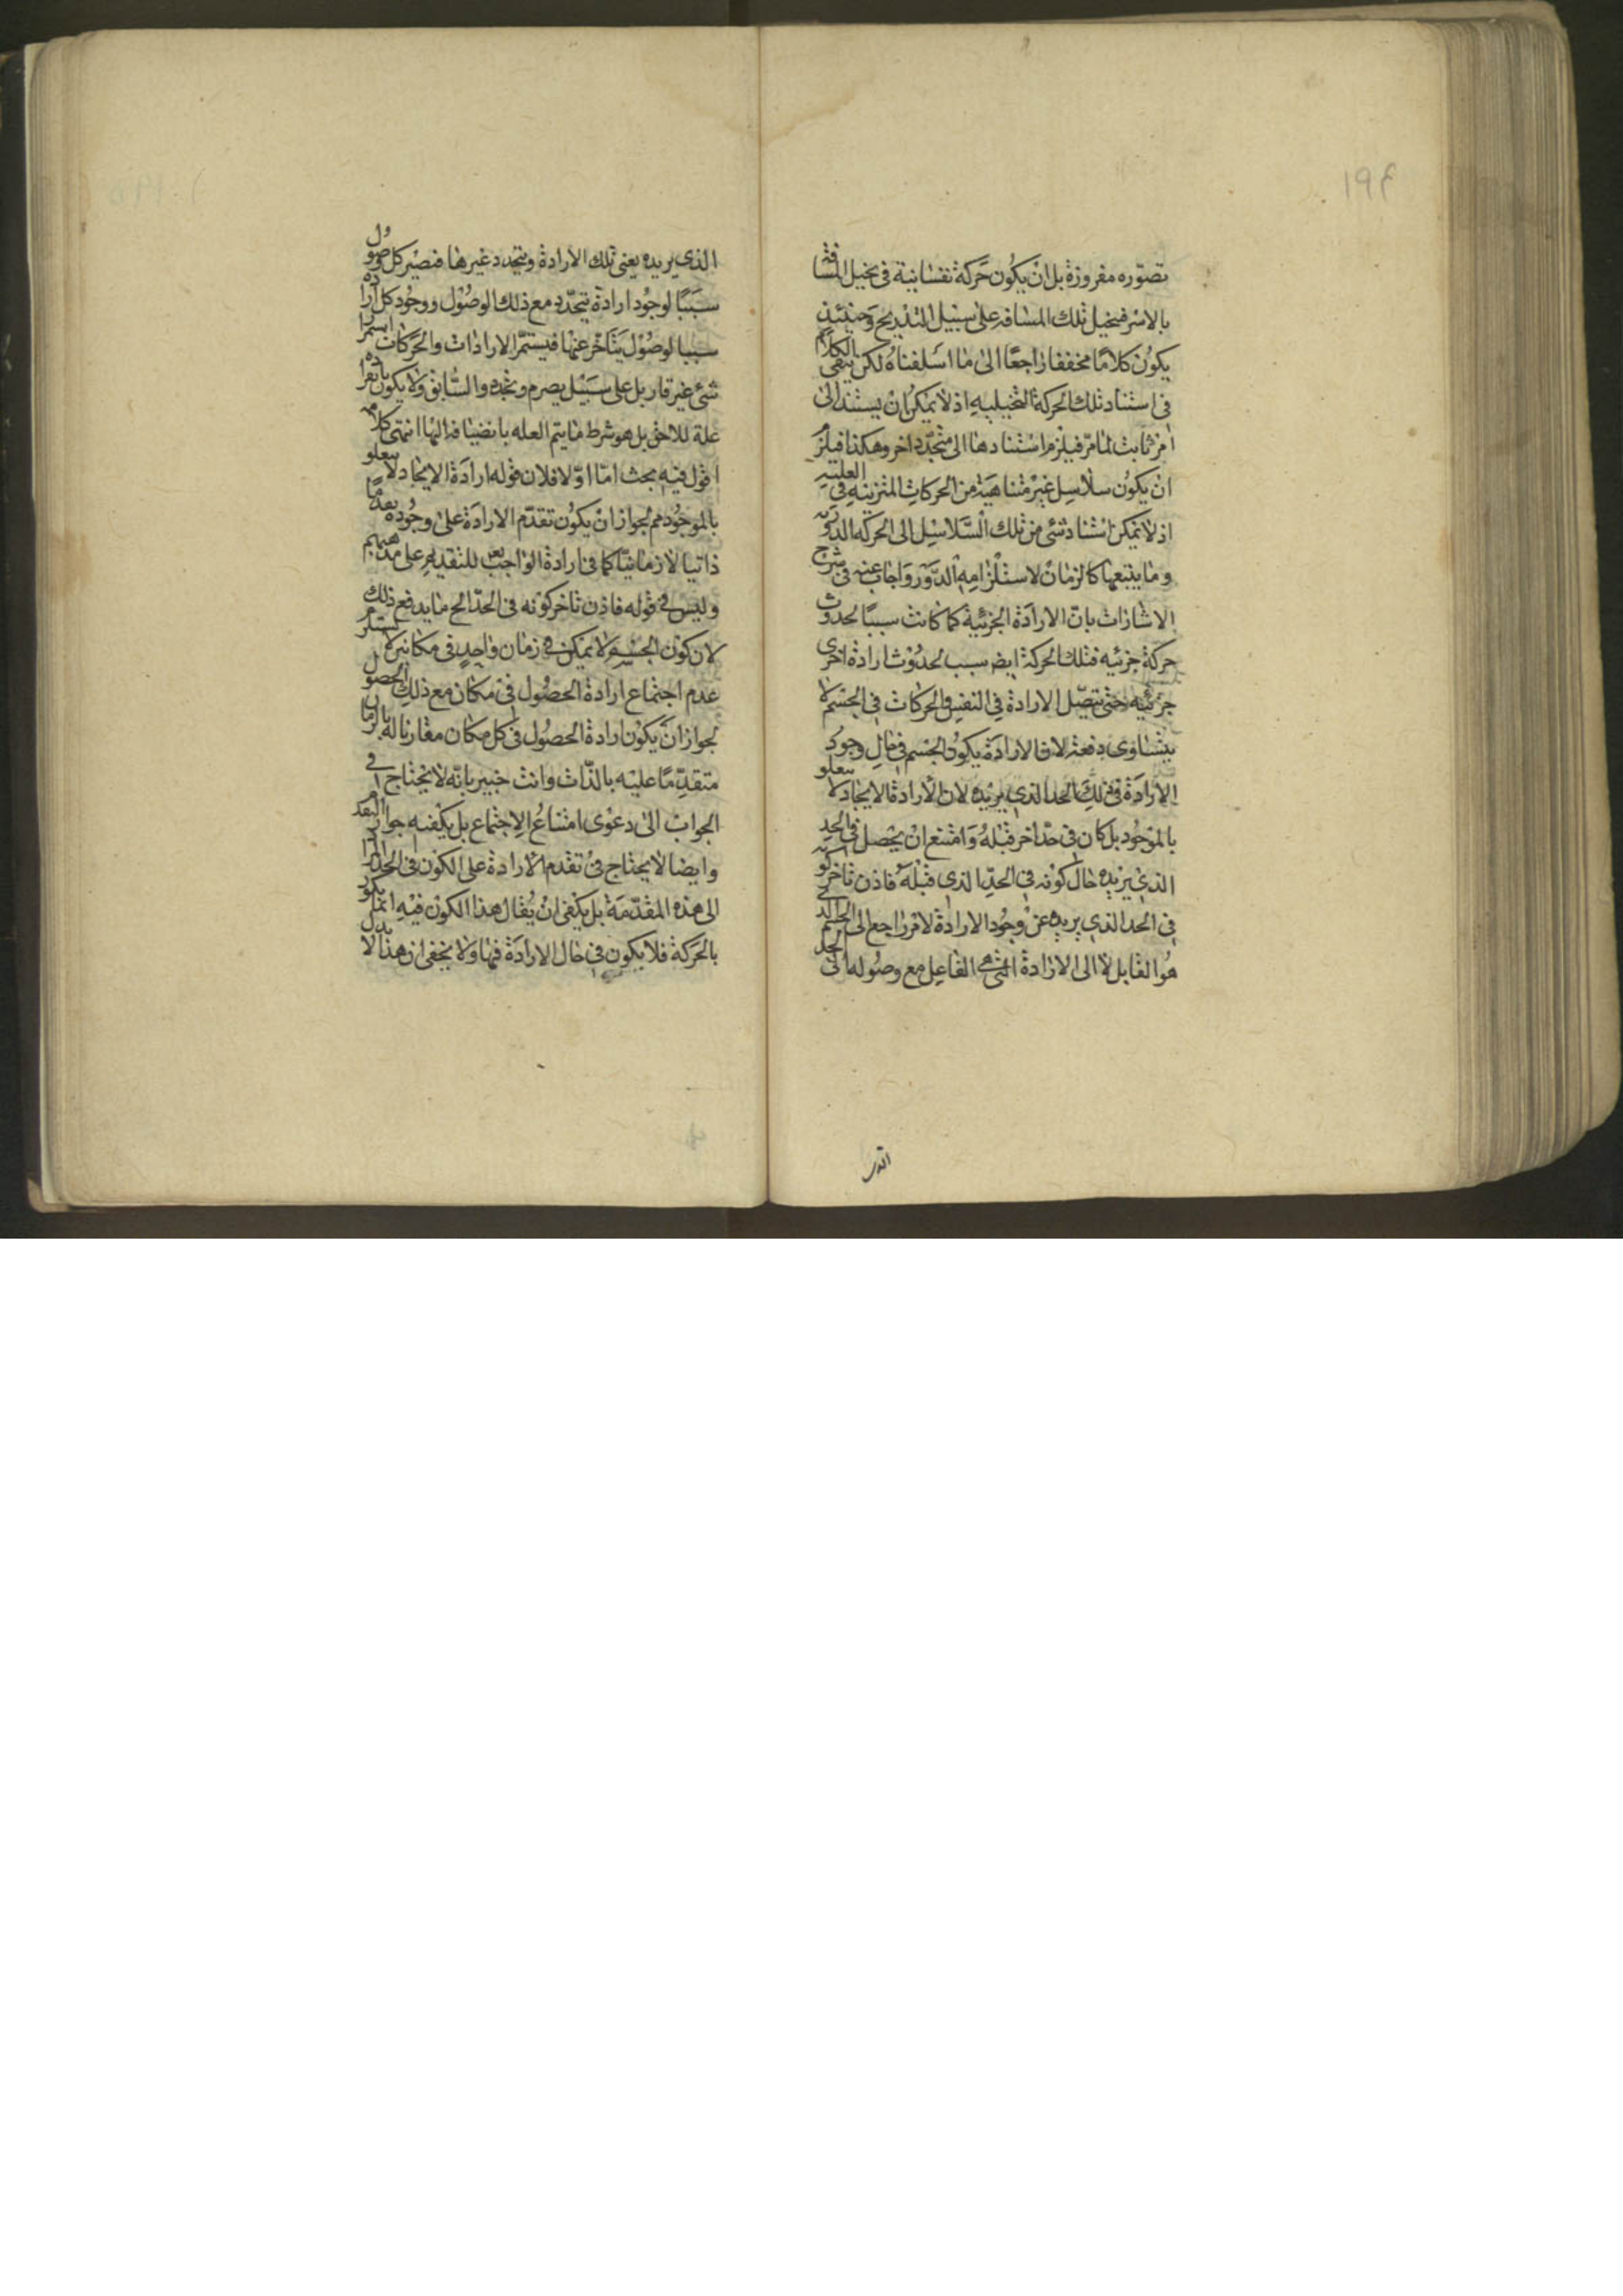 ١٩٤
تصوّره مفروزة بل ان يكون حركة نفسانية فى تخيل المسافة
بالاسر فيتخيل تلك المسافة على سبيل التدريج وحينئذ
يكون كلامًا مخففا راجعًا الى ما اسلفناه لكن يبقى الكلام
فى استناد تلك الحركة التخيلية اذ لا يمكن ان يستند الى
امر ثابت لما مرّ فيلزم استنادها الى متجدّد اخر وهكذا فيلزم
ان يكون سلاسل غير متناهية من الحركات المترتبة فى العلية
اذ لا يمكن استناد شئ من تلك السلاسل الى الحركة الدورية
وما يتبعها كالزمان لاستلزامه الدور واجاب عنه فى شرح
الاشارات بان الارادة الجزئية كما كانت سببًا لحدوث
حركة جزئيه فتلك الحركة ايض سبب لحدوث ارادة اخرى
جزئيه حتى تتصل الارادة فى النفس والحركات فى الجسم لا
يتساوى دفعة لان الارادة يكون الجسم فى حال وجود
الارادة فى ذلك الحد الذى يريده لان الارادة الايجاد لا يتعلو
بالموجود بل كان فى حدّ اخر قبله وامتنع ان يحصل فى الحد
الذى يريده حال كونه فى الحدّ الذى قبله فاذن تاخر كونه
فى الحد الذى يريده عن وجود الارادة لامر راجع الى الجسم الذى
هو القابل لا الى الارادة التى هى الفاعل مع وصوله الى الحد
الذي يريده يعنى تلك الارادة ويتجدد غيرها فتصير كل وصول
سببًا لوجود ارادة تتجدّد مع ذلك الوصول ووجود كل ارادة
سببا لوصول يتأخر عنها فيستمرّ الارادات والحركات استمرار
شئ غير قار بل على سبيل يصرم وتجدد والسابق ولا يكون بانفراده
علة للاحق بل هو شرط ما يتم العله بانضيافه اليها انتهى كلامه
اقول فيه بحث امّا اوّلا فلان قوله ارادة الايجاد لا يتعلو
بالموجود هم لجواز ان يكون تقدّم الارادة على وجوده تقدمًا
ذاتيا لا زمانيّا كما فى ارادة الواجب تعـ للتقديم على مذهبهم
وليس فى قوله فاذن تاخر كونه فى الحدّ الخ ما يدفع ذلك
لان كون الجسم لا يمكن فى زمان واحد فى مكانين لا يستلزم
عدم اجتماع ارادة الحصول فى مكان مع ذلك الحصول
لجواز ان يكون ارادة الحصول فى كل مكان مقارنا له بالزمان
متقدّمًا عليه بالذات وانت خبير بانّه لا يحتاج فى
الجواب الى دعوى امتناع الاجتماع بل يكفيه جواز التقدم
وايضا لا يحتاج فى تقدم الارادة على الكون فى الحد المراد
الى هذه المقدّمة بل يكفى ان يُقال هذا الكون فيه انما يكون
بالحركة فلا يكون فى حال الارادة فيها ولا يخفى ان هذا لا يدل